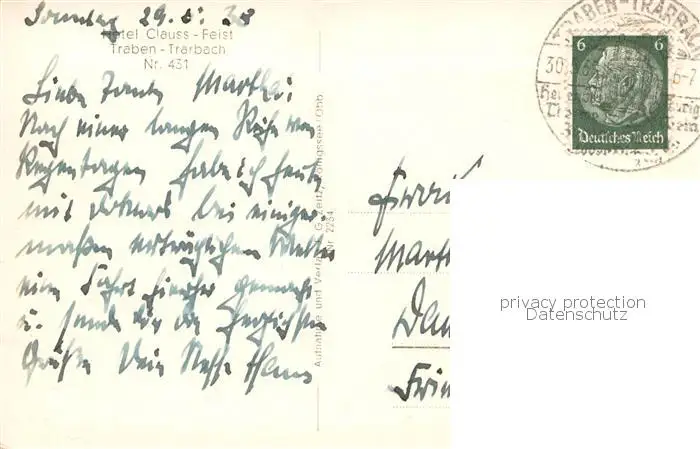 Sonntag 29.5.38
Hotel Clauss - Feist
Traben - Trarbach
Nr. 431
Liebe Tante Martha!
Nach einer langen Reihe von
Regentagen habe ich heute
mit bei einiger-
maßen erträglichem Wetter
eine Fahrt hierher gemacht
u. sende Dir die herzlichsten
Grüße Dein Neffe Hans
Aufnahme und Verlag G. Zeitz, Königssee/Obb.
Nr. 2254
TRABEN-TRARBACH
30
6-7
6 6
Deutsches Reich
Martha
privacy protection
Datenschutz